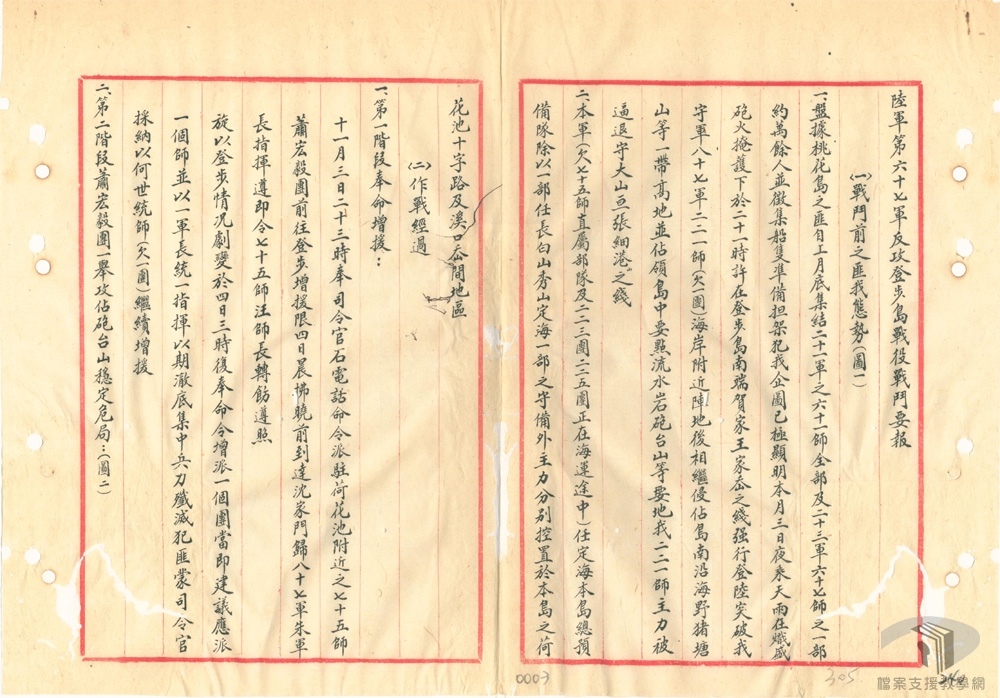 陸軍第六十七軍反攻登步島戰役戰鬥要報
㈠戰鬥前之匪我態勢(圖一)
一、盤據桃花島之匪自上月底集結二十一軍之六十一師全部及二十三軍六十七師之一部
約萬餘人並徵集船隻準備担架犯我企圖已極顯明本月三日夜乘天雨在熾盛
砲火掩護下於二十一時許在登步島南端賀家王家岙之綫强行登陸突破我
守軍八十七軍二二一師(欠一團)海岸附近陣地後相繼侵佔島南沿海野猪塘
山等一帶高地並佔領島中要點流水岩砲台山等要地我二二一師主力被
逼退守大山亘張網港之綫
二、本軍(欠七十五師直屬部隊及二二三團二二五團正在海運途中)任定海本島總預
備隊除以一部任長白山秀山定海一部之守備外主力分別控置於本島之荷
花池十字路及溪口岙間地區
㈡作戰經過
一、第一階段奉命增援：
十一月三日二十三時奉司令官石電話命令派駐荷花池附近之七十五師
蕭宏毅團前往登步增援限四日晨拂曉前到達沈家門歸八十七軍朱軍
長指揮遵即令七十五師汪師長轉飭遵照
旋以登步情况劇變於四日三時復奉命令增派一個團當即建議應派
一個師並以一軍長統一指揮以期澈底集中兵力殲滅犯匪蒙司令官
採納以何世統師(欠一團)繼續增援
二、第二階段蕭宏毅團一舉攻佔砲台山穩定危局：(圖二)
0003
305
檔案支援教學網